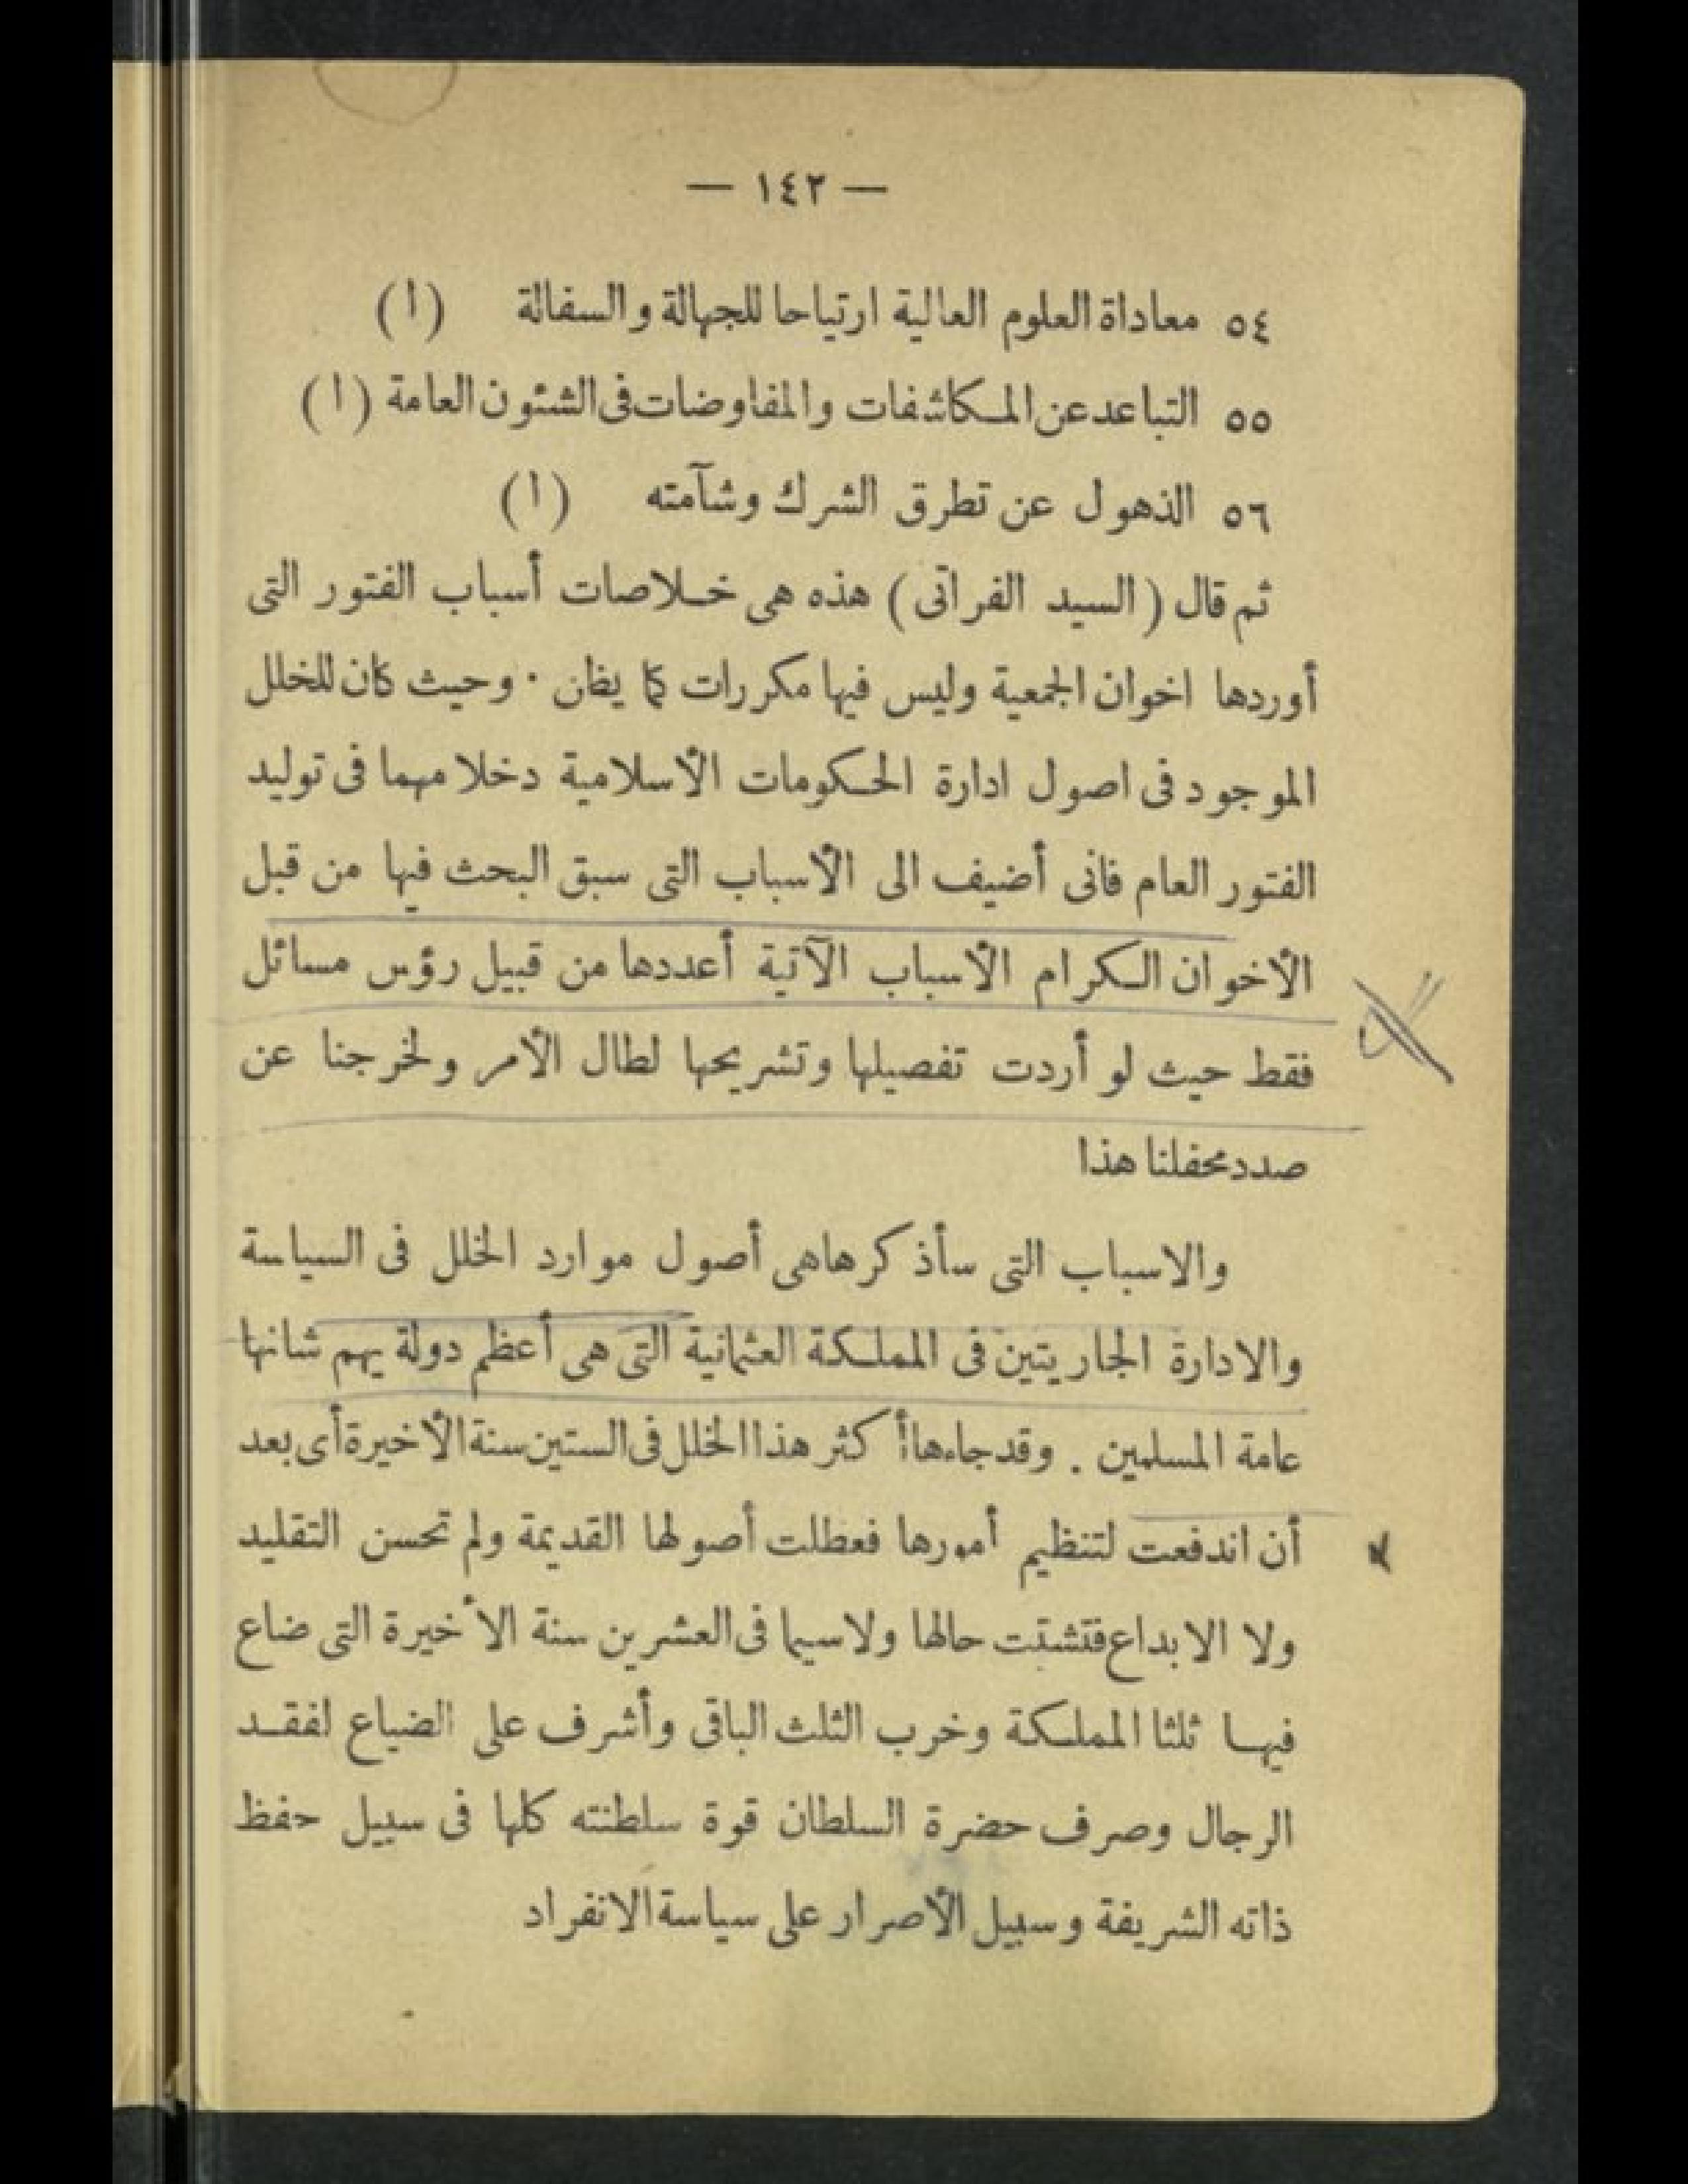 — ١٤٢ —
٥٤ معاداة العلوم العالية ارتياحا للجهالة والسفالة (١)
٥٥ التباعد عن المكاشفات والمفاوضات فى الشئون العامة (١)
٥٦ الذهول عن تطرق الشرك وشآمته (١)
ثم قال (السيد الفراتى) هذه هى خلاصات أسباب الفتور التى
أوردها اخوان الجمعية وليس فيها مكررات كما يظن . وحيث كان للخلل
الموجود فى اصول ادارة الحكومات الأسلامية دخلا مهما فى توليد
الفتور العام فانى أضيف الى الأسباب التى سبق البحث فيها من قبل
الأخوان الكرام الأسباب الآتية أعددها من قبيل رؤس مسائل
فقط حيث لو أردت تفصيلها وتشريحها لطال الأمر ولخرجنا عن
صدد محفلنا هذا
والاسباب التى سأذكرها هى أصول موارد الخلل فى السياسة
والادارة الجاريتين فى المملكة العثمانية التى هى أعظم دولة يهم شانها
عامة المسلمين . وقد جاءها أكثر هذا الخلل فى الستين سنة الأخيرة أى بعد
أن اندفعت لتنظيم أمورها فعطلت أصولها القديمة ولم تحسن التقليد
ولا الابداع فتشتت حالها ولا سيما فى العشرين سنة الأخيرة التى ضاع
فيها ثلثا المملكة وخرب الثلث الباقى وأشرف على الضياع لفقد
الرجال وصرف حضرة السلطان قوة سلطنته كلها فى سبيل حفظ
ذاته الشريفة وسبيل الأصرار على سياسة الانفراد